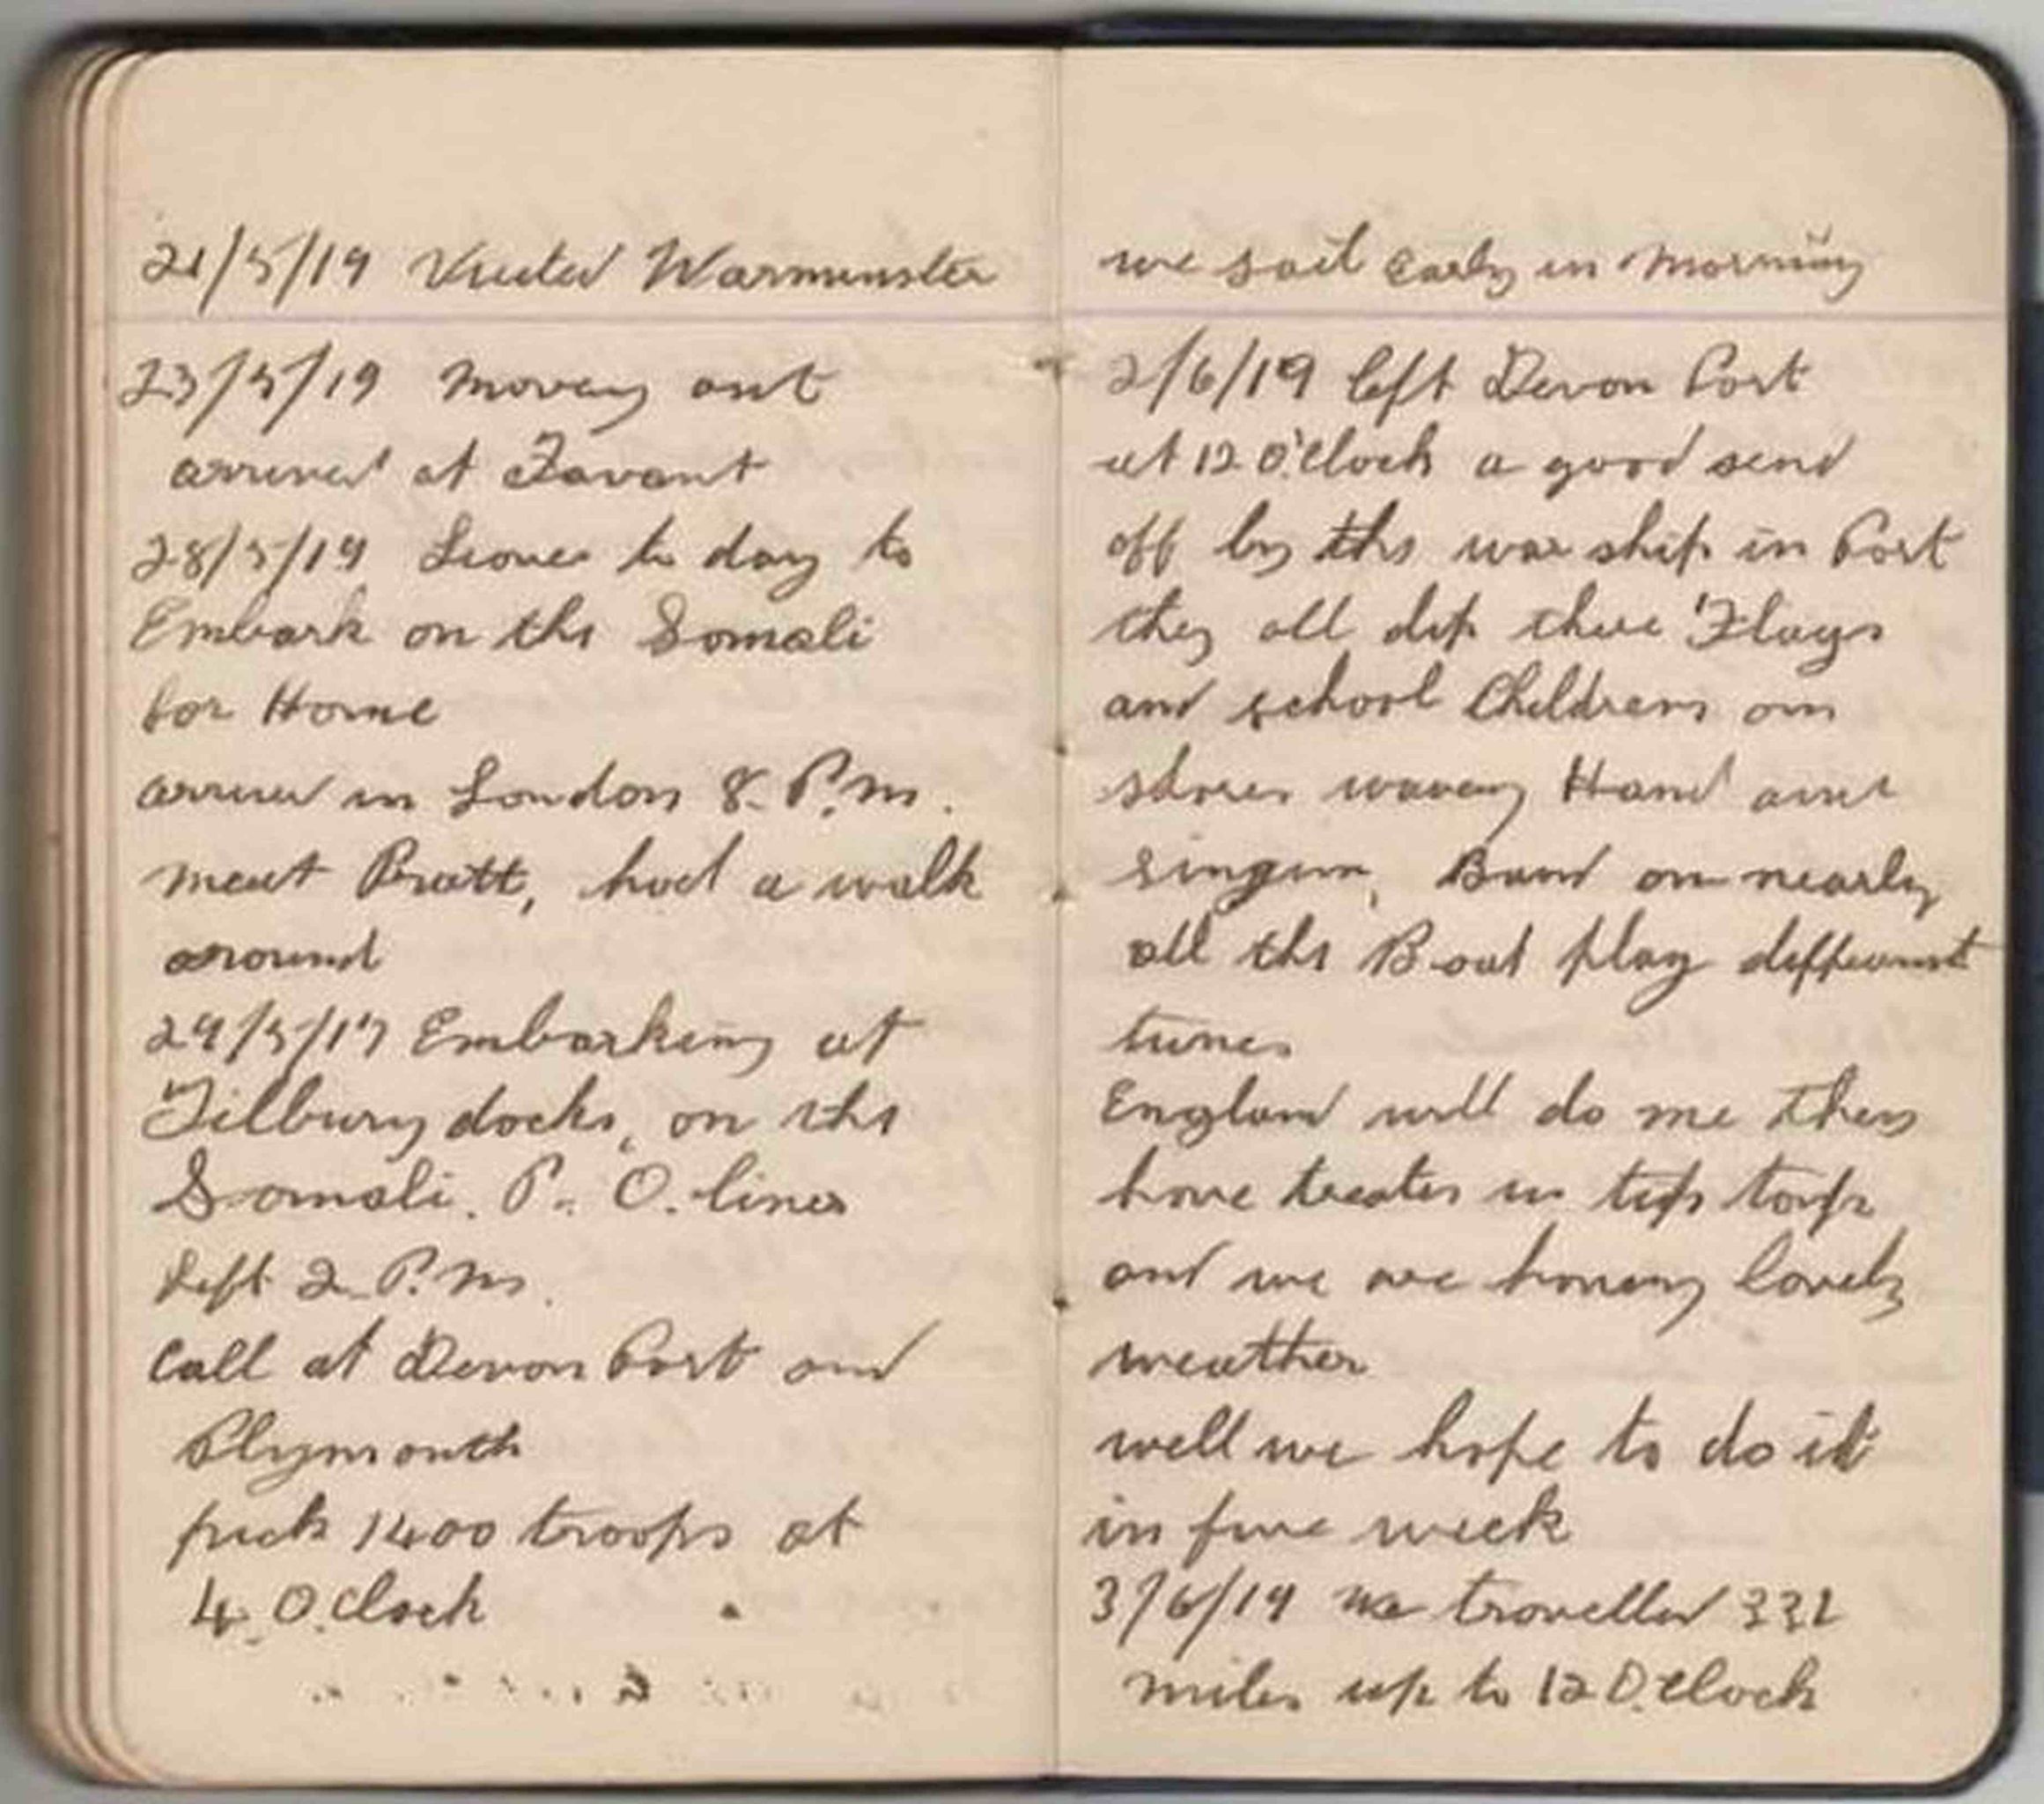 21/5/19 Visited Warminster
23/5/19 Moveing out
arrived at Favant
28/5/19 Leave to day to
Embark on the Somali
for Home
arrived in London 8. P.M.
meat Pratt, had a walk
around
29/5/19 Embarking at
Tilbury docks, on the
Somali. P. O. lines
Left 2 P.M.
Call at Devon Port and
Plymouth
pick 1400 troops at
4. O.Clock
we sail Early in Morning
2/6/19 left Devon Port
at 12 O'Clock a good send
off by the war ship in Port
they all dip there Flags
and school Childrens on
shores waveing Hand and
singing, Band on nearly
all the Boat play different
tunes
England will do me they
have treated us tip top
and we are having lovely
weather
well we hope to do it
in five week
3/6/19 we travelled 331
miles up to 12 O.Clock